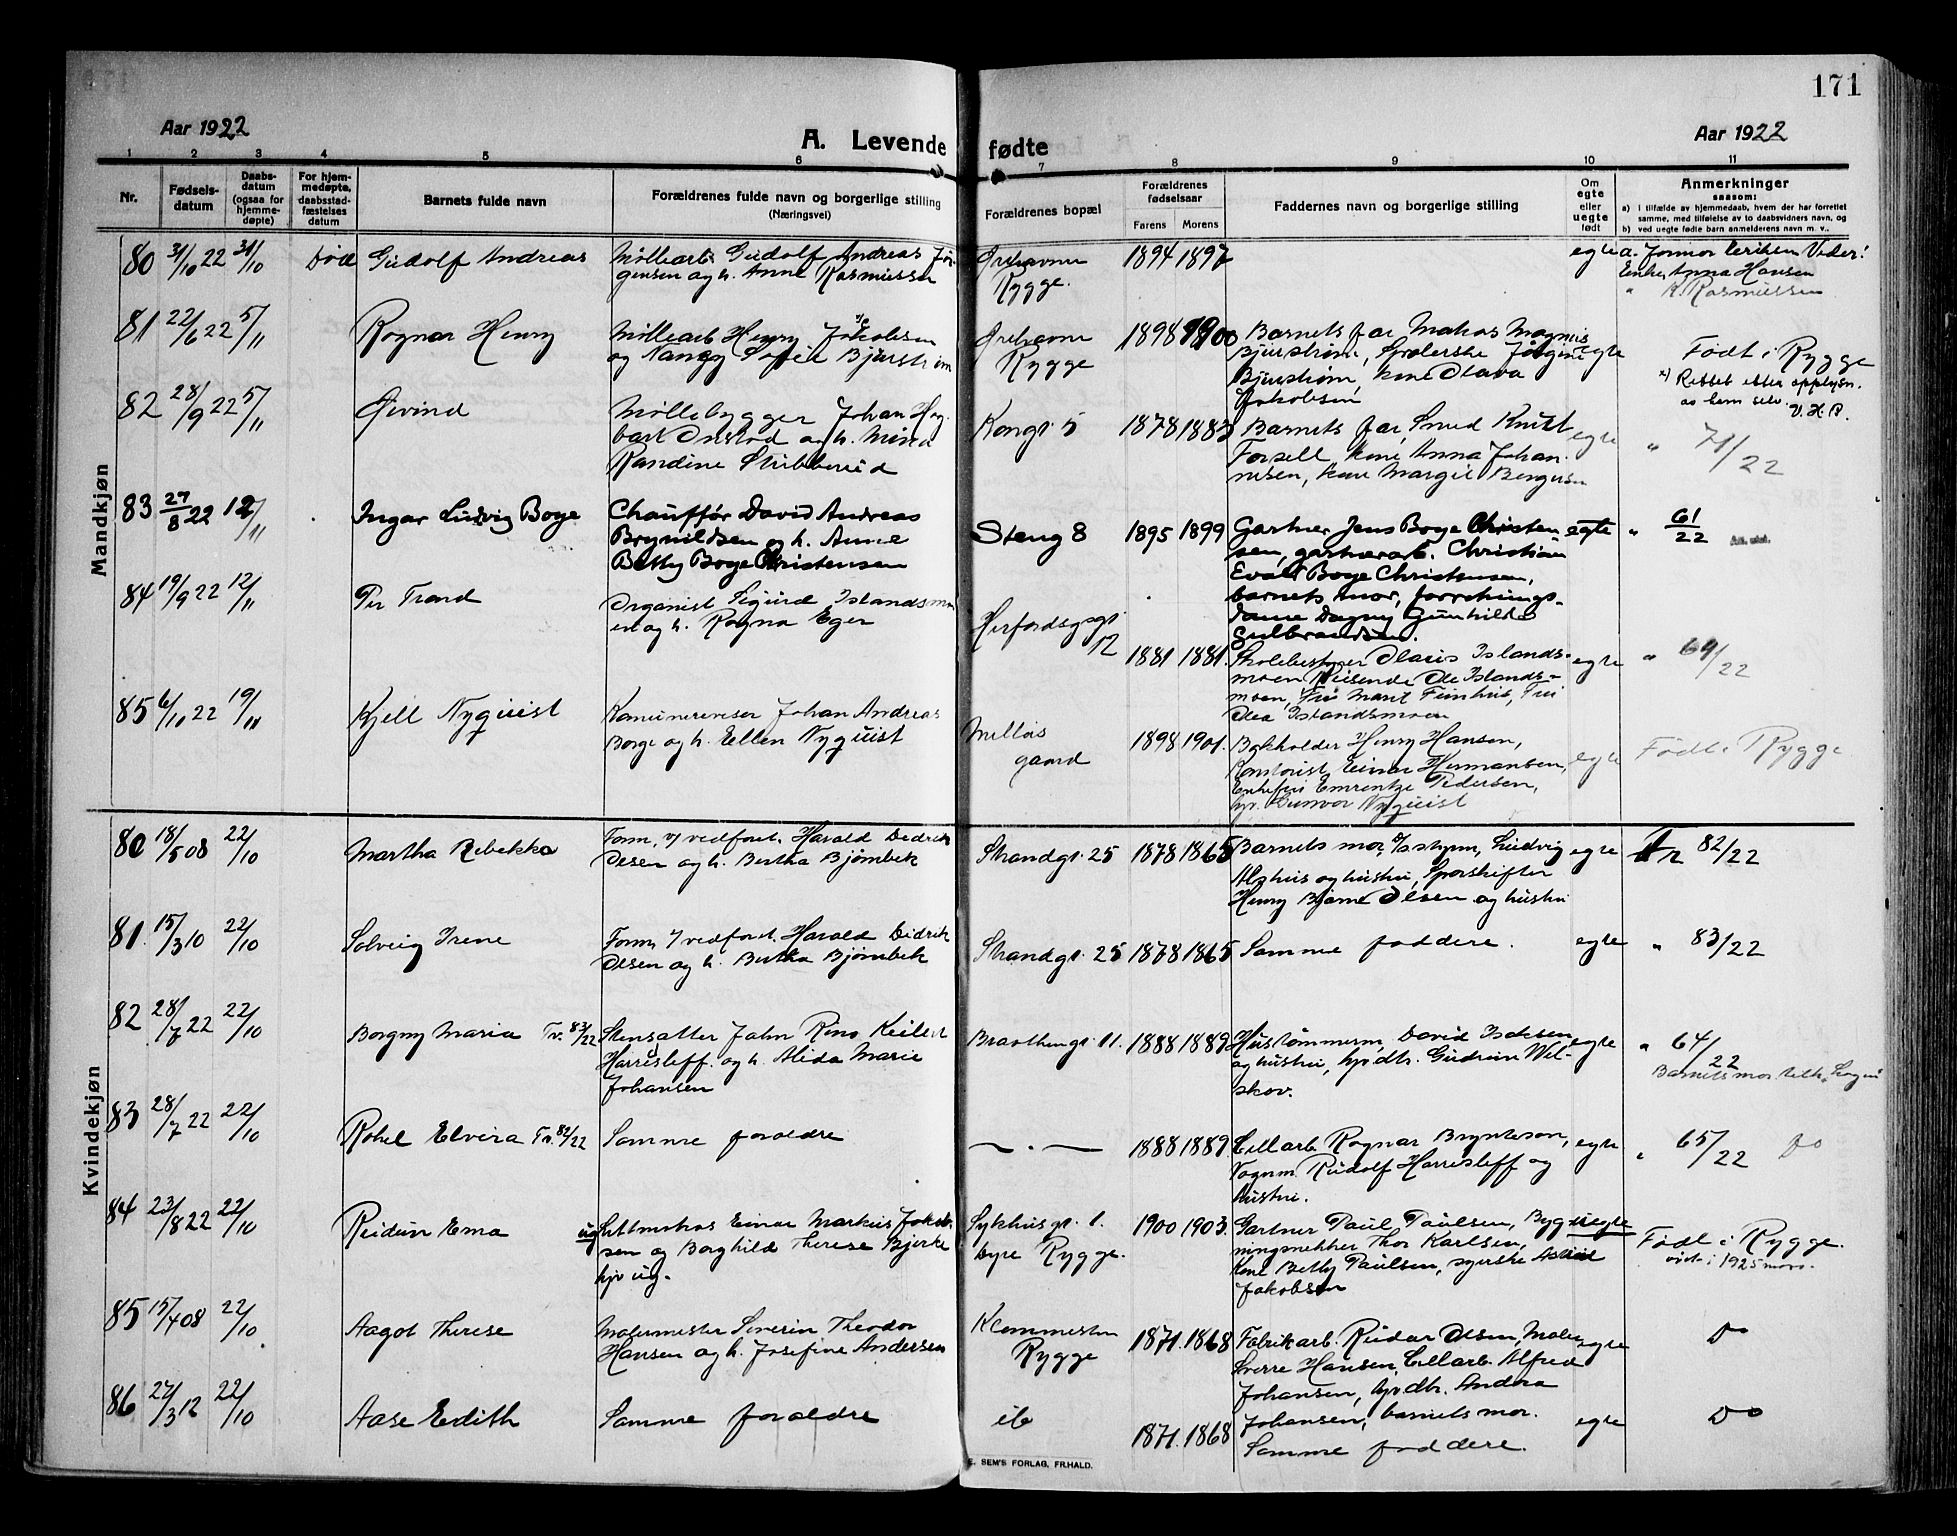 171
Aar 1922
A. Levende fødte
Aar 1922
1 2 3 4 5 6 7 8 9 10 11
Nr.
Fødsels-
datum
Daabs-
datum
(ogsaa for
hjemme-
døpte)
For hjem-
medøpte,
daabsstad-
fæstelses
datum
Barnets fulde navn
Forældrenes fulde navn og borgerlige stilling
(Næringsvei)
Forældrenes bopæl
Forældrenes
fødselsaar
Farens Morens
Faddernes navn og borgerlige stilling
Om
egte
eller
uegte
født
Anmerkninger
saasom:
a) i tilfælde av hjemmedaab, hvem der har forrettet
samme, med tilføielse av to daabsvidners navn, og
b) ved uegte fødte barn anmelderens navn m. v.
Mandkjøn
80 31/10 22 31/10 Død Gudolf Andreas
Møllearb. Gudolf Andreas Jør-
gensen og h. Anne Rasmussen
Ørehavna
Rygge.
1894 1897
egte
a. Jormor
Enke, Anna Hansen
" K. Rasmussen
81 22/6 22 5/11 Ragnar Henry
Møllearb Henry Jakobsen
og Nancy Sofie Bjurstrøm
Ørehavna
Rygge
1898 1900
Barnets far, Magnus
Bjurstrøm,
Bjurstrøm, kone Olava
Jakobsen
egte
Født i Rygge
x) Rettet efter opplysn.
82 28/9 22 5/11 Øivind
Møllebygger Johan Hag-
bart Onstad og h. Minda
Randine Stubberud
Kongs. 5
1878 1883
Barnets far, Smed Knut
Forsell, kone Anna Johan-
nesen, kone Margit Bengtsen
egte
" 71/22
83 27/8 22 12/11 Ingar Ludvig Boye
Chauffør David Andreas
Brynildsen og h. Anne
Betty Boye Christensen
Steng 8
1895 1899
Gartner Jens Boye Christen-
sen, gartnerarb. Christian
Evald Boye Christensen,
barnets mor, forretnings-
dame Dagny Gunhilda
Gulbrandsen.
egte
" 61/22
84 19/9 22 12/11 Per Trond
Organist Sigurd Islandsmo-
en og h. Ragna Eger
Herfordsgs
12
1881 1881
Skolebestyrer Olaus Islands-
moen, Reisende Ole Islands-
moen, Fru Marit Feinhus, Fru
Olea Islandsmoen
egte
" 69/22
85 6/10 22 19/11 Kjell Nyquist
Komunerevisor Johan Andreas
Borge og h. Ellen Nyquist
Melløs
gaard
1898 1901.
Bokholder Henry Hansen,
Kontorist Einar Hermansen,
Enkefru Emrentze Pedersen,
frk. Gunvor Nyquist
egte
Født i Rygge
Kvindekjøn
80 18/5 08 22/10 Martha Rebekka
Form. v/ vedforet. Harald Didrik
Olsen og h. Bertha Bjørnbek
Strandgt. 25
1878 1865
Barnets mor, Ludvig
og hustru, Sporskifter
Henry Bjarne Olsen og hustru
egte
Nr 82/22
81. 15/3 10 22/10 Solveig Irene
Form. v/ vedforet. Harald Didrik
Olsen og h. Bertha Bjørnbek
Strandgt. 25
1878 1865
Samme faddere.
egte
" 83/22
82 28/7 22 22/10 Borgny Maria Tv. 83/22
Stensætter John Keilert
Harrisleff. og h. Alida Marie
Johansen
Braathengt 11.
1888 1889
Hustømmerm. David Isaksen
og hustru, hjdtr. Gudrun Wel-
skov.
egte
" 64/22
Barnets mor
83 28/7 22 22/10 Rakel Elvira Tv. 82/22
Samme forældre
— . —
1888 1889
Cellarb. Ragnar Bryntesen,
Vognm. Rudolf Harrisleff og
hustru.
egte
" 65/22 Do
84 23/8 22 22/10 Reidun Ema ug
Einar Markus Jakob-
sen og Borghild Therese Bjerke
hjv ug.
Sykhusgt. 1.
Dyre Rygge.
1900 1903.
Gartner Paul Paulsen, Byg-
ningssnekker Thor Karlsen,
Kone Betty Paulsen, syerske
Jakobsen
uegte
Født i Rygge.
viet i 1925
85 15/4 08 22/10 Aagot Therese
Malermester Severin Theodor
Hansen og h. Josefine Andersen
Klommesten
Rygge
1871. 1868
Fabrikarb. Reidar Olsen, Maler
Sverre Hansen, Cellarb. Alfred
Johansen, hjdtr. Andrea
Johansen, barnets mor.
egte
Do
86 27/3 12 22/10 Aase Edith
Samme forældre
ib
1871. 1868
Samme faddere.
egte
Do
E. SEM'S FORLAG, FR.HALD.